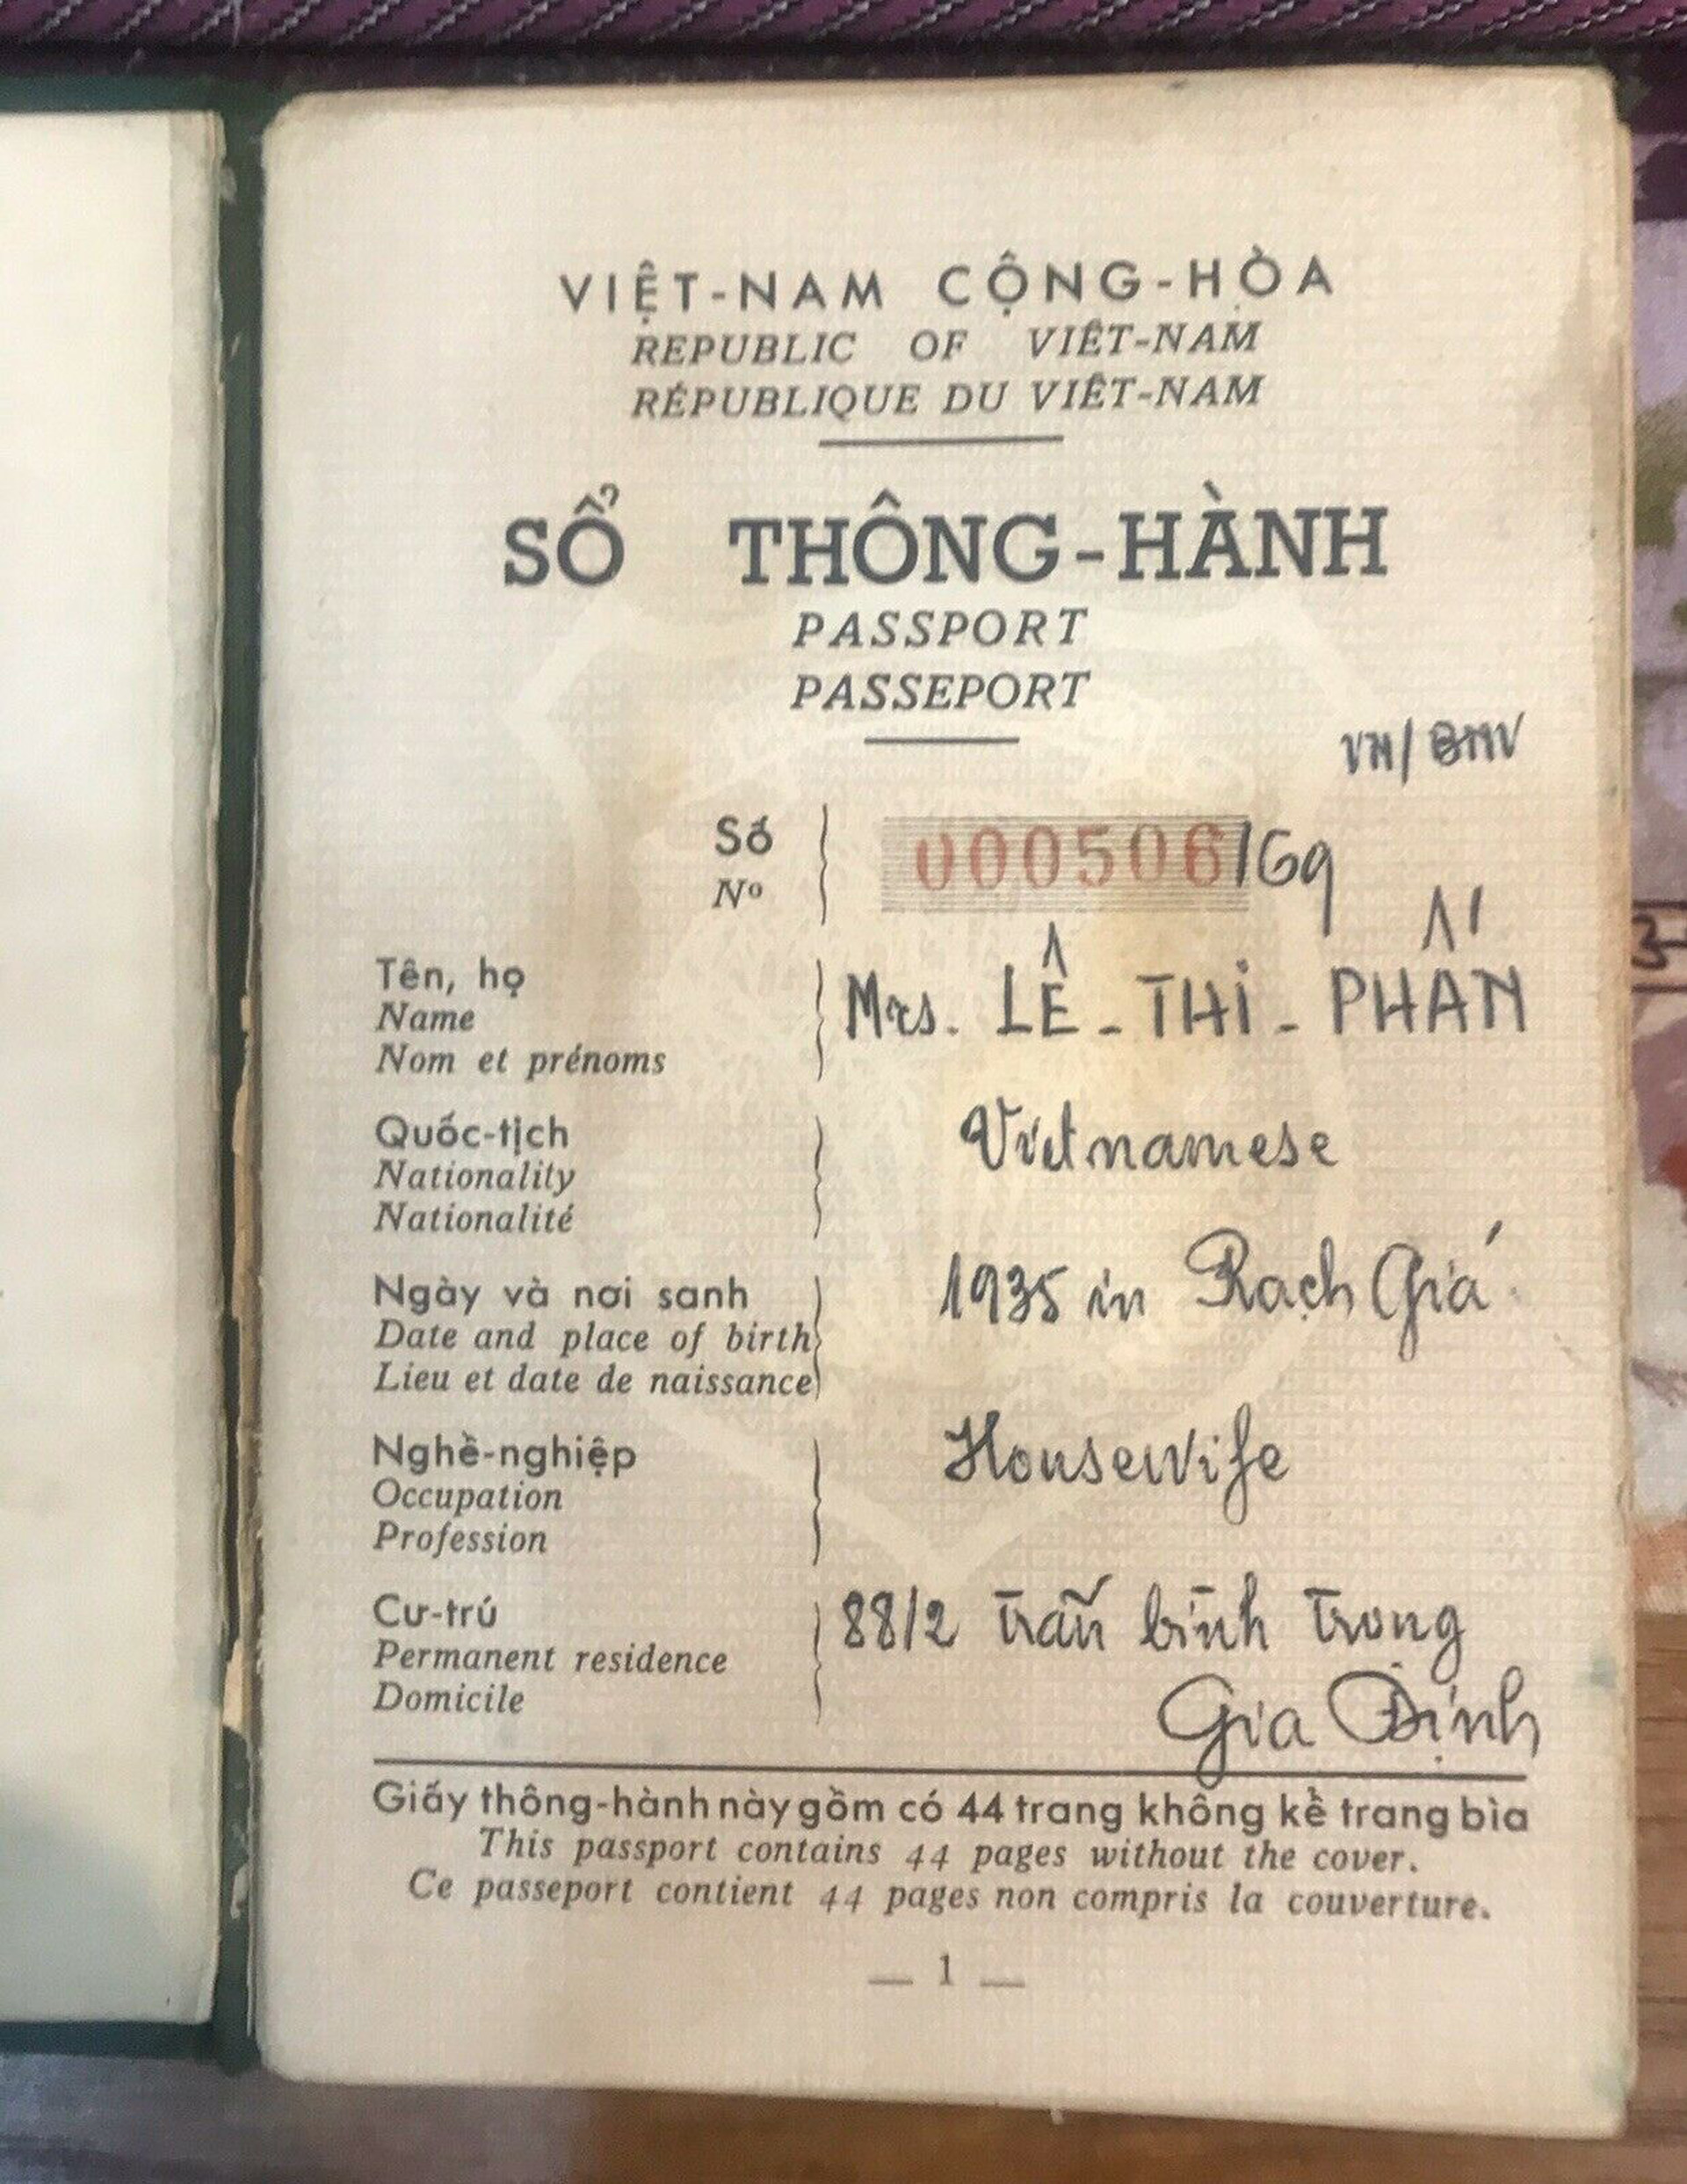 VIỆT-NAM CỘNG-HÒA
REPUBLIC OF VIÊT-NAM
RÉPUBLIQUE DU VIÊT-NAM
SỔ THÔNG-HÀNH
PASSPORT
PASSEPORT
VN/
Số
Nº
000506/69
Tên, họ
Name
Nom et prénoms
Mrs. LÊ - THỊ - PHẤN
Quốc-tịch
Nationality
Nationalité
Vietnamese
Ngày và nơi sanh
Date and place of birth
Lieu et date de naissance
1935 in Rạch Giá
Nghề-nghiệp
Occupation
Profession
Housewife
Cư-trú
Permanent residence
Domicile
88/2 Trần bình Trọng
Gia Định
Giấy thông-hành này gồm có 44 trang không kể trang bìa
This passport contains 44 pages without the cover.
Ce passeport contient 44 pages non compris la couverture.
— 1 —